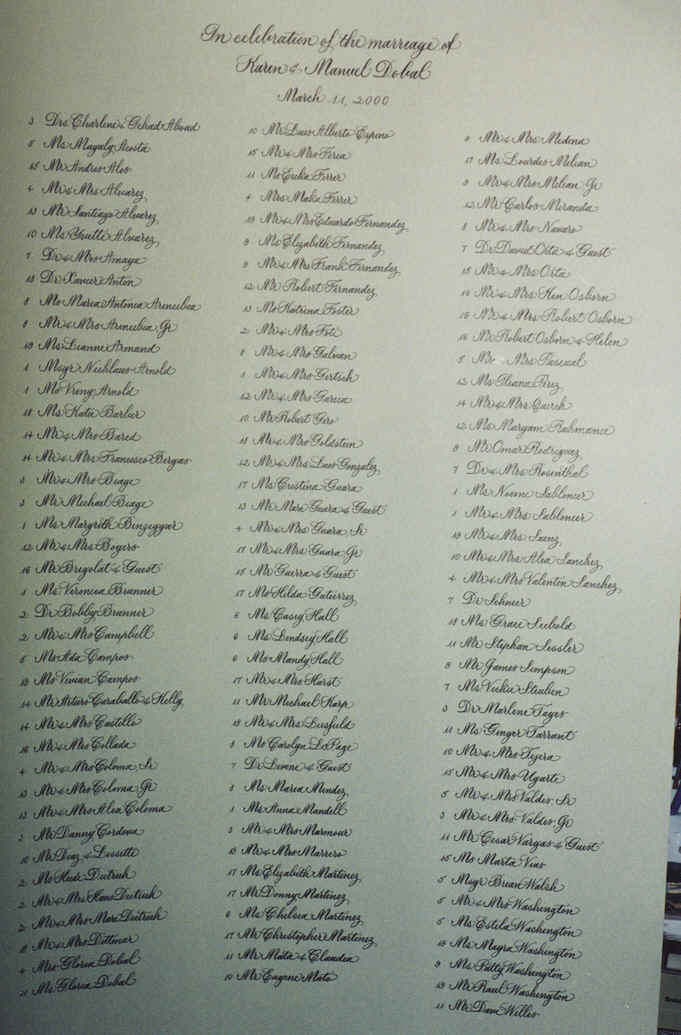 In celebration of the marriage of
Karen & Manuel Dobal
March 11, 2000
3 Drs. Charlene & Gehad Aboad
5 Ms Magaly Acosta
15 Mr Andres Alos
4 Mr & Mrs Alvarez
13 Mr Santiago Alvarez
10 Ms Yvette Alvarez
7 Dr & Mrs Amaya
18 Dr Xavier Anton
8 Ms Maria Antonia
8 Mr & Mrs Jr
19 Ms Lianne Armand
1 Msgr Nicklaus Arnold
1 Ms Vreny Arnold
18 Ms Katie Barber
14 Mr & Mrs Bared
14 Mr & Mrs Francisco
3 Mr & Mrs Beage
3 Mr Michael Beage
1 Ms Margrith Binzeggar
12 Mr & Mrs Boyero
16 Mr Brigolat & Guest
1 Ms Veronica Brunner
2 Dr Bobby Brunner
2 Mr & Mrs Campbell
5 Ms Ada Campos
18 Ms Vivian Campos
14 Mr Arturo Caraballo & Kelly
14 Mr & Mrs Castillo
16 Mr & Mrs Collada
4 Mr & Mrs Coloma, Sr
13 Mr & Mrs Coloma Jr
13 Mr & Mrs Alex Coloma
3 Mr Danny Cordova
10 Mr Diaz & Lissette
2 Ms Heidi Dietrich
2 Mr & Mrs Hans Dietrich
2 Mr & Mrs Marc Dietrich
11 Mr & Mrs Dittmar
4 Mrs Gloria Dobal
11 Ms Gloria Dobal
10 Mr Luis Alberto Espino
15 Mr & Mrs Feria
11 Ms Ericka Ferrer
4 Mrs Malia Ferrer
19 Mr & Mrs Eduardo Fernandez
9 Ms Elizabeth Fernandez
9 Mr & Mrs Frank Fernandez
12 Mr Robert Fernandez
13 Ms Katrina Foster
2 Mr & Mrs Foti
8 Mr & Mrs Galvan
1 Mr & Mrs Gertsch
12 Mr & Mrs Garcia
10 Mr Robert Giro
11 Mr & Mrs Goldstein
12 Mr & Mrs Luis Gonzalez
17 Ms Cristina Guara
13 Mr Marc Guara & Guest
4 Mr & Mrs Guara, Sr
17 Mr & Mrs Guara Jr
15 Mr Guerra & Guest
17 Ms Hilda Gutierrez
6 Ms Casey Hall
6 Ms Lindsey Hall
6 Ms Mandy Hall
17 Mr & Mrs Horst
11 Mr Michael Karp
19 Mr & Mrs Liesfield
8 Ms Carolyn LePage
7 Dr Levine & Guest
8 Ms Maria Mendez
1 Ms Anna Mandell
3 Mr & Mrs Marmour
18 Mr & Mrs Marrero
17 Ms Elizabeth Martinez
17 Mr Donny Martinez
6 Ms Chelsea Martinez
17 Mr Christopher Martinez
11 Mr Mata & Claudia
10 Mr Eugene Mata
9 Mr & Mrs Medina
17 Ms Lourdes Milian
9 Mr & Mrs Milian Jr
12 Mr Carlos Miranda
8 Mr & Mrs Navaro
7 Dr David Oita & Guest
18 Mr & Mrs Oita
16 Mr & Mrs Ken Osborn
16 Mr & Mrs Robert Osborn
16 Mr Robert Osborn & Helen
5 Mr Mrs Pascual
13 Ms Iliana Perez
14 Mr & Mrs Quirch
12 Ms Maryam Rahmanie
8 Mr Omar Rodriguez
7 Dr & Mrs Rosenthal
1 Ms Noemi Sablonier
1 Mr & Mrs Sablonier
19 Mr & Mrs Saenz
10 Mr & Mrs Alex Sanchez
4 Mr & Mrs Valentin Sanchez
7 Dr Schneer
18 Ms Grace Siebold
11 Mr Stephan Sessler
8 Mr James Simpson
7 Ms Vickie Steuben
3 Dr Marlene Tages
11 Ms Ginger Tarrant
10 Mr & Mrs Tejera
15 Mr & Mrs Ugarte
5 Mr & Mrs Valdes, Sr
3 Mr & Mrs Valdes, Jr
11 Mr Cesar Vargas & Guest
15 Ms Marta Vias
5 Msgr Brian Walsh
5 Mr & Mrs Washington
5 Ms Estela Washington
18 Ms Mayra Washington
9 Ms Patty Washington
19 Mr Raul Washington
11 Mr Dave Willis